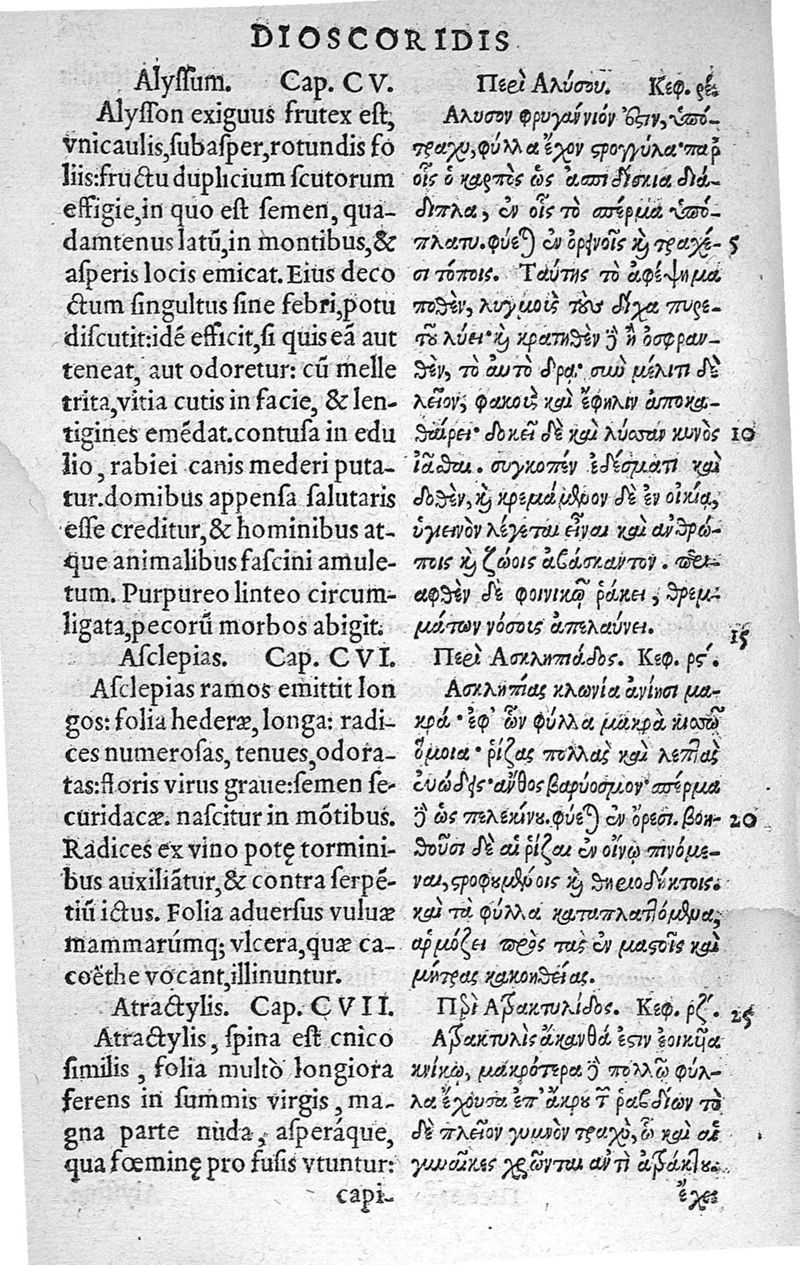 DIOSCORIDIS
Alyſſum. Cap. CV.
Alyſſon exiguus frutex eſt,
vnicaulis,ſubaſper,rotundis fo
liis:fructu duplicium ſcutorum
effigie,in quo eſt ſemen, qua-
damtenus latũ,in montibus,&
aſperis locis emicat. Eius deco
ctum ſingultus ſine febri,potu
diſcutit:idẽ efficit,ſi quis eã aut
teneat, aut odoretur: cũ melle
trita,vitia cutis in facie, & len-
tigines emẽdat.contuſa in edu
lio, rabiei canis mederi puta-
tur.domibus appenſa ſalutaris
eſſe creditur,& hominibus at-
que animalibus faſcini amule-
tum. Purpureo linteo circum-
ligata,pecorũ morbos abigit.
Aſclepias. Cap. CVI.
Aſclepias ramos emittit lon
gos: folia hederæ, longa: radi-
ces numeroſas, tenues,odora-
tas:floris virus graue:ſemen ſe-
curidacæ. naſcitur in mõtibus.
Radices ex vino potę tormini-
bus auxiliãtur,& contra ſerpẽ-
tiũ ictus. Folia aduerſus vuluæ
mammarúmq; vlcera,quæ ca-
coëthe vocant,illinuntur.
Atractylis. Cap. CVII.
Atractylis, ſpina eſt cnico
ſimilis, folia multò longiora
ferens in ſummis virgis, ma-
gna parte nuda, aſperáque,
qua fœminę pro fuſis vtuntur:
capi-
Περὶ Αλύσου. Κεφ. ρέ.
Αλυσον φρυγάνιόν ἐστιν, ὑπό-
τραχυ,φύλλα ἔχον στρογγύλα·παρ'
οἷς ὁ καρπὸς ὡς ἀσπιδίσκια διά-
διπλα, ἐν οἷς τὸ σπέρμα ὑπό-
πλατυ.φύεται ἐν ὀρεινοῖς καὶ τραχέ- 5
σι τόποις. Ταύτης τὸ αφέψημα
ποθὲν, λυγμοὺς τοὺς δίχα πυρε-
τοῦ λύει· καὶ κρατηθὲν δὲ ἢ ὀσφραν-
θὲν, τὸ ἀυτὸ δρᾷ· σὺν μέλιτι δὲ
λεῖον, φακοὺς καὶ ἔφηλιν ἀποκα-
θαίρει· δοκεῖ δὲ καὶ λύσσαν κυνὸς 10
ἰᾶσθαι. συγκοπέν ἐδέσματι καὶ
δοθὲν, καὶ κρεμάμενον δὲ ἐν οἰκίᾳ,
ὑγιεινὸν λέγεται εἶναι καὶ ανθρώ-
ποις καὶ ζώοις ἀβάσκαντον. περι-
αφθὲν δὲ φοινικῷ ῥάκει, θρεμ-
μάτων νόσους απελαύνει. 15
Περὶ Ασκληπιάδος. Κεφ. ρϛ'.
Ασκληπίας κλωνία ἀνίησι μα-
κρά· ἐφ' ὧν φύλλα μακρὰ κισσῷ
ὅμοια· ῥίζας πολλὰς καὶ λεπτὰς
ἐυώδεις· ἄνθος βαρύοσμον· σπέρμα
δὲ ὡς πελεκίνου.φύεται ἐν ὄρεσι. βοη- 20
θοῦσι δὲ αἱ ῥίζαι ἐν οἴνῳ πινόμε-
ναι,στροφουμένοις καὶ θηριοδήκτοις.
καὶ τὰ φύλλα καταπλαττόμενα,
αρμόζει πρὸς τὰς ἐν μαστοῖς καὶ
μήτρας κακοηθείας.
Περὶ Ατρακτυλίδος. Κεφ. ρζ'. 25
Ατρακτυλὶς ἄκανθά ἐστιν ἐοικυῖα
κνίκῳ, μακρότερα δὲ πολλῷ φύλ-
λα ἔχουσα ἐπ' ἄκρου τῶν ῥαβδίων τὸ
δὲ πλεῖον γυμνὸν τραχὺ, ᾧ καὶ αἱ
γυναῖκες χρῶνται αντὶ ἀτράκτου.
ἔχει